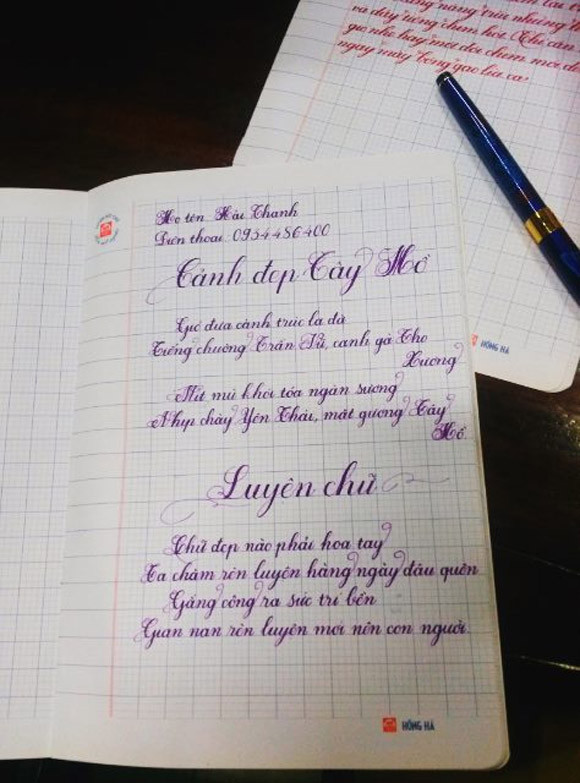 năng trĩu những
và dây tiếng chim hót. Chỉ cần
gió nhẹ hay mới đôi chim mới đ
ngay mấy bông gạo lìa
Họ tên Hải Thanh
Điện thoại: 0934486400
Cảnh đẹp Tây Hồ
Gió đưa cành trúc la đà
Tiếng chuông Trấn Vũ, canh gà Thọ
Xương
Mịt mù khói tỏa ngàn sương
Nhịp chày Yên Thái, mặt gương Tây
Hồ.
Luyện chữ
Chữ đẹp nào phải hoa tay
Ta chăm rèn luyện hàng ngày đâu quên
Gắng công ra sức trí bền
Gian nan rèn luyện mới nên con người.
HỒNG HÀ
HỒNG HÀ